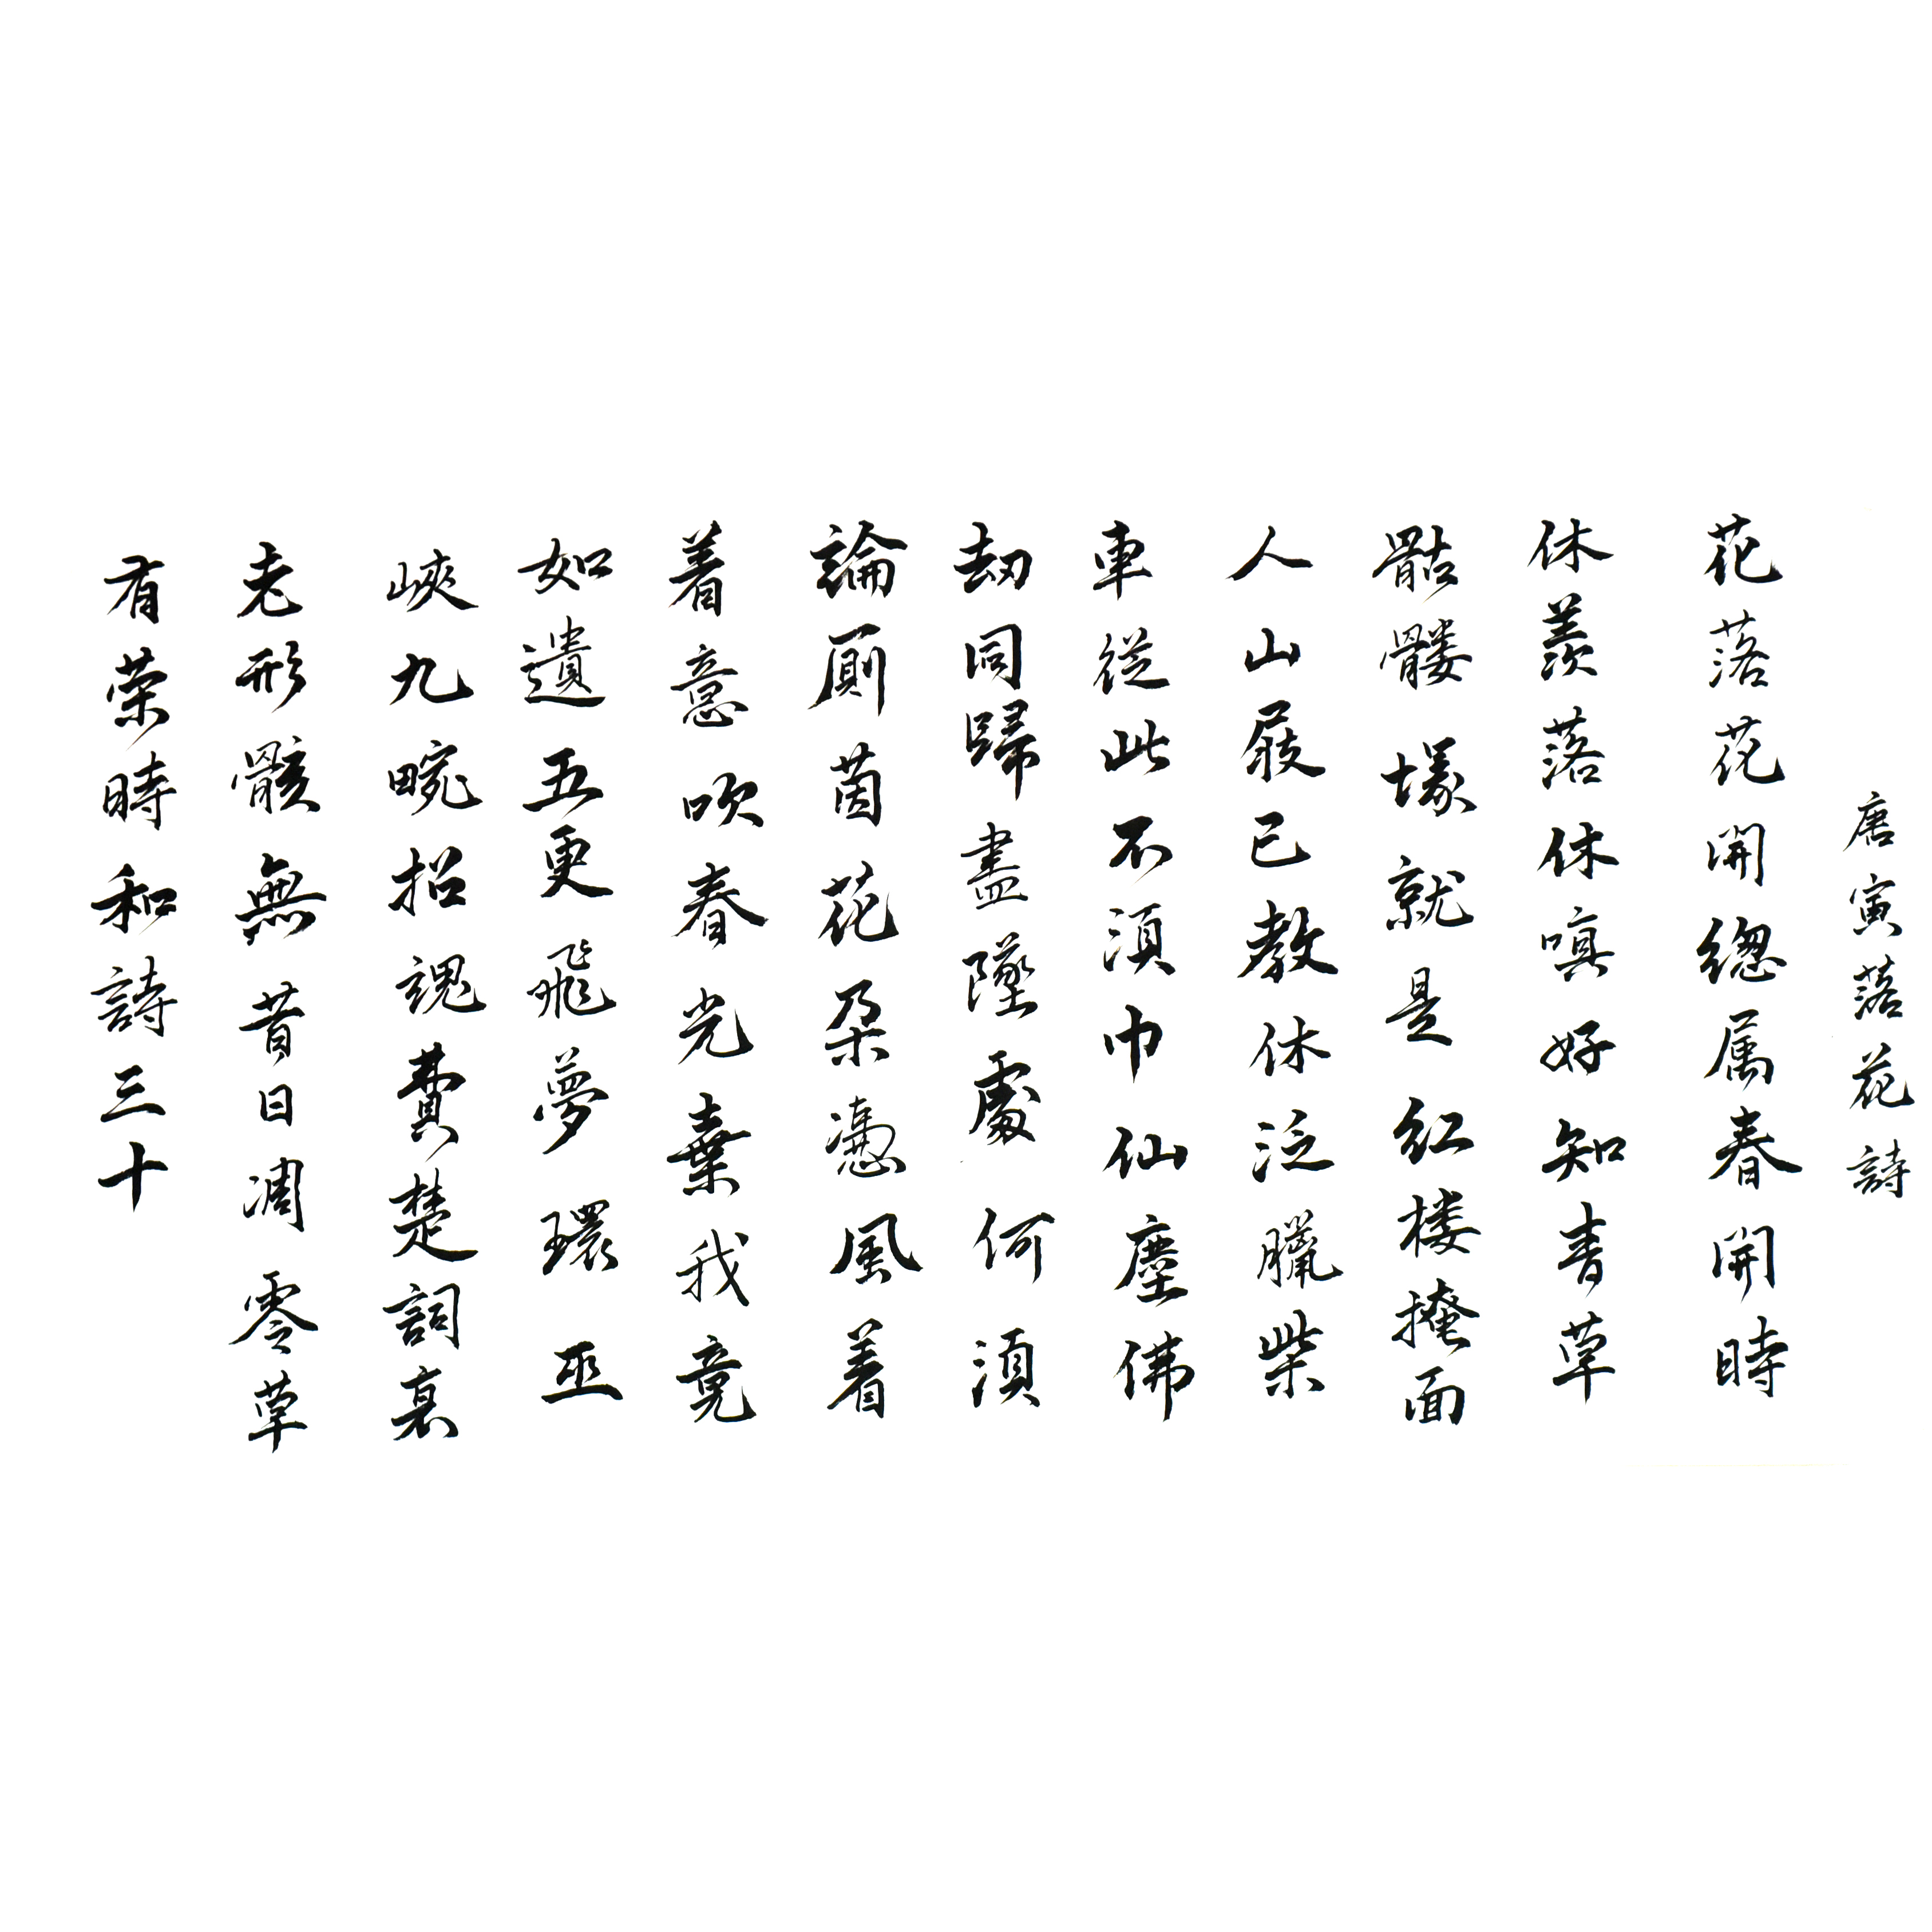 唐寅落花詩
花落花開總属春開時
休羨落休嗔好知青草
骷髅塚就是红楼掩面
人山屐已教休泛臘柴
車從此不須巾仙塵佛
劫同歸盡墜處何須
論厠茵花朶憑風着
着意吹春光棄我竟
如遺五更飛夢環巫
峽九畹招魂費楚詞衰
老形骸無昔日凋零草
有荣時和詩三十